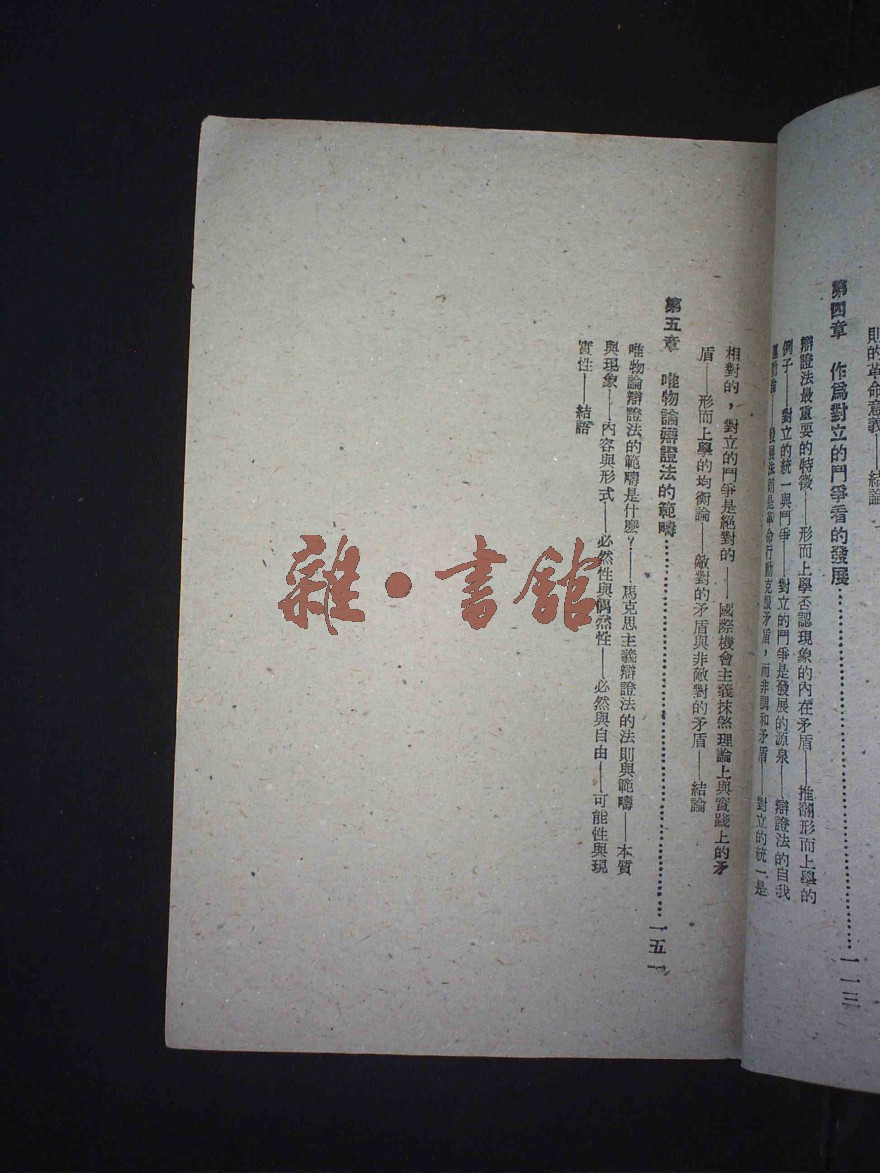 則的革命意義——結論
第四章　作爲對立的鬥爭看的發展……一一三
辯證法最重要的特徵——形而上學否認現象的內在矛盾——推翻形而上學的
例子——對立的統一與鬥爭——對立的鬥爭是發展的源泉——辯證法的自我
發展法則是革命行動克服矛盾，而非調和矛盾——對立的統一是
相對的，對立的鬥爭是絕對的——國際機會主義抹煞理論上與實踐上的矛
盾——形而上學的均衡論——敵對的矛盾與非敵對的矛盾——結論
第五章　唯物論辯證法的範疇……一五一
唯物論辯證法的範疇是什麼？——馬克思主義辯證法的法則與範疇——本質
與現象——內容與形式——必然性與偶然性——必然與自由——可能性與現
實性——結語
雜·書館